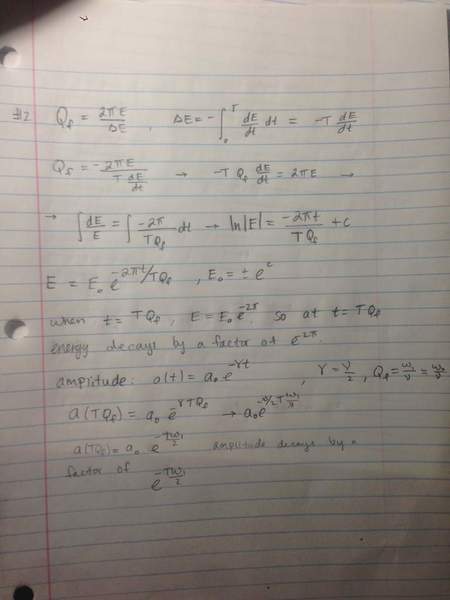 #2 Q_f = 2πE/ΔE , ΔE = -∫₀ᵀ dE/dt dt = -T dE/dt
Q_f = -2πE/(T dE/dt) → -T Q_f dE/dt = 2πE →
→ ∫ dE/E = ∫ -2π/(TQ_f) dt → ln|E| = -2πt/(TQ_f) + c
E = E₀ e^(-2πt/TQ_f) , E₀ = ± e^c
when t = TQ_f , E = E₀ e^(-2π) so at t = TQ_f
energy decays by a factor of e^(-2π).
amplitude: a(t) = a₀ e^(-γt) , γ = ν/2 , Q_f = ω₁/ν =
a(TQ_f) = a₀ e^(-γTQ_f) → a₀ e^(-ν/2 T ω₁/ν)
a(TQ_f) = a₀ e^(-Tω₁/2) amplitude decays by a
factor of e^(-Tω₁/2)